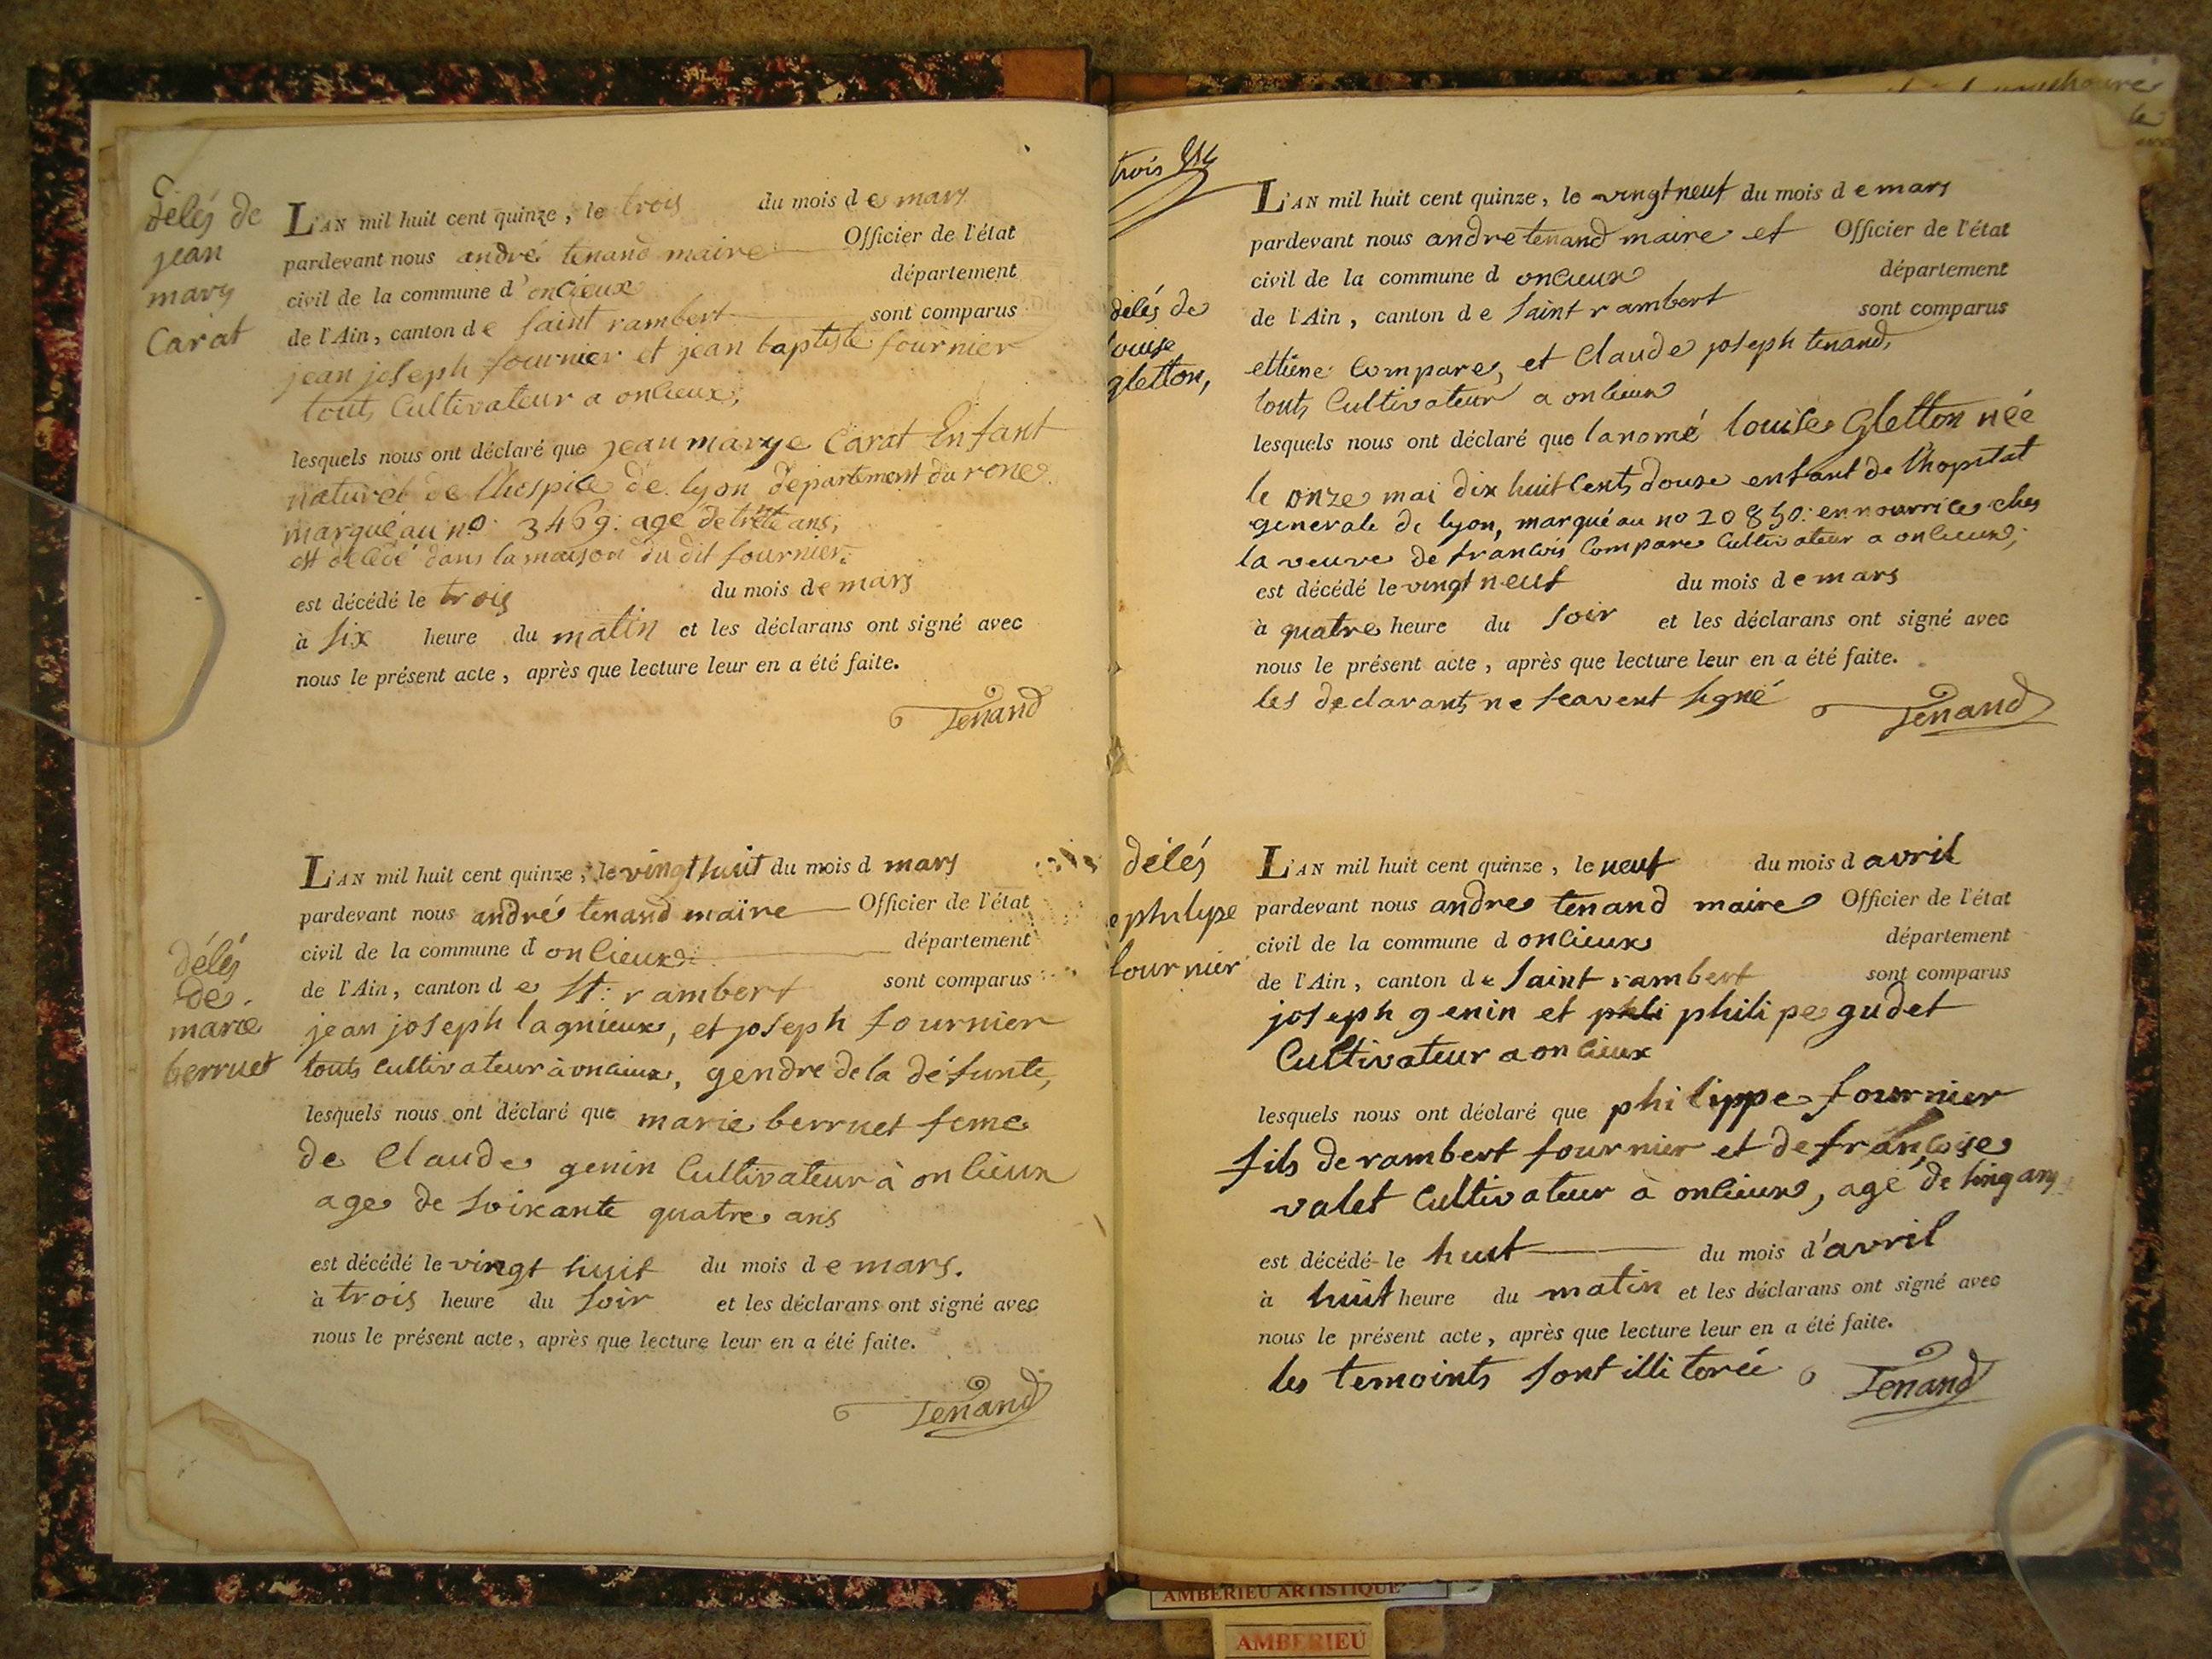 délés de
jean
mary
Carat
L'AN mil huit cent quinze, le trois du mois de mars
pardevant nous andré tenand maire Officier de l'état
civil de la commune d'onlieux département
de l'Ain, canton de saint rambert sont comparus
jean joseph fournier et jean baptiste fournier
touts Cultivateur a onlieux,
lesquels nous ont déclaré que jean marye Carat Enfant
naturel de lhospice de lyon département du rone
marqué au no 3469: agé de ans,
est décédé dans la maison du dit fournier.
est décédé le trois du mois de mars
à six heure du matin et les déclarans ont signé avec
nous le présent acte, après que lecture leur en a été faite.
Tenand
délés
de
marie
berruet
L'AN mil huit cent quinze, le vingt huit du mois d mars
pardevant nous andré tenand maire Officier de l'état
civil de la commune d onlieux département
de l'Ain, canton de St: rambert sont comparus
jean joseph lagnieux, et joseph fournier
touts cultivateur à onlieux, gendre de la défunte,
lesquels nous ont déclaré que marie berruet feme
de Claude genin Cultivateur à onlieux
age de soixante quatre ans
est décédé le vingt huit du mois de mars.
à trois heure du soir et les déclarans ont signé avec
nous le présent acte, après que lecture leur en a été faite.
Tenand
trois
délés de
louise
gletton,
L'AN mil huit cent quinze, le vingt neuf du mois de mars
pardevant nous andre tenand maire et Officier de l'état
civil de la commune d onlieux département
de l'Ain, canton de saint rambert sont comparus
ettiene Compare, et Claude joseph tenand,
touts Cultivateur a onlieux
lesquels nous ont déclaré que la nomé louise Gletton née
le onze mai dix huit Cents douze enfant de l'hopital
generale de lyon, marqué au no 20850: en nourrice ches
la veuve de francois Compare Cultivateur a onlieux;
est décédé le vingt neuf du mois de mars
à quatre heure du soir et les déclarans ont signé avec
nous le présent acte, après que lecture leur en a été faite.
les declarants ne scavent signé Tenand
délés
e philipe
fournier
L'AN mil huit cent quinze, le neuf du mois d avril
pardevant nous andre tenand maire Officier de l'état
civil de la commune d onlieux département
de l'Ain, canton de saint rambert sont comparus
joseph genin et phili philipe gudet
Cultivateur a onlieux
lesquels nous ont déclaré que philippe fournier
fils de rambert fournier et de françoise
valet Cultivateur à onlieux, agé de sinq ans
est décédé le huit du mois d'avril
à huit heure du matin et les déclarans ont signé avec
nous le présent acte, après que lecture leur en a été faite.
les temoints sont illiterée Tenand
AMBERIEU ARTISTIQUE
AMBERIEU